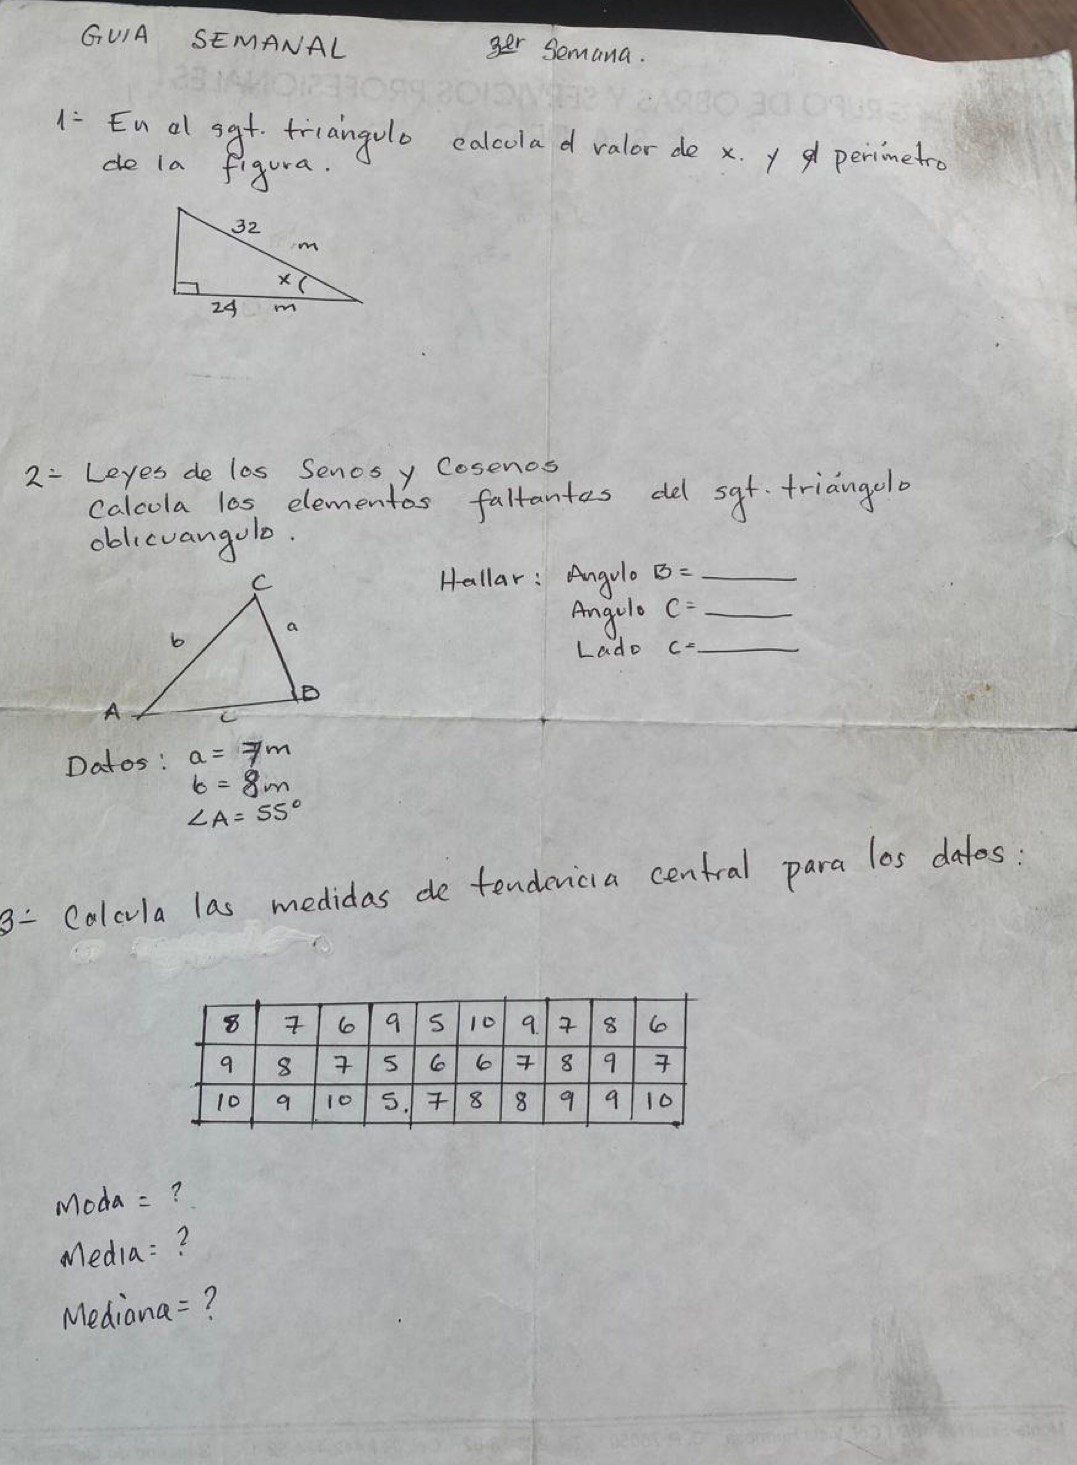 GUIA SEMANAL 3er Semana.
1- En el sgt. triángulo calcula el valor de x. y el perímetro
de la figura.
32
m
x
24 m
2- Leyes de los Senos y Cosenos
Calcula los elementos faltantes del sgt. triángulo
oblicuangulo.
C
Hallar: Angulo B=
Angulo C=
Lado c=
b
a
A
B
c
Datos: a= 7m
b= 8m
∠A= 55°
3- Calcula las medidas de tendencia central para los datos:
8 7 6 9 5 10 9 7 8 6
9 8 7 5 6 6 7 8 9 7
10 9 10 5. 7 8 8 9 9 10
Moda = ?
Media= ?
Mediana= ?